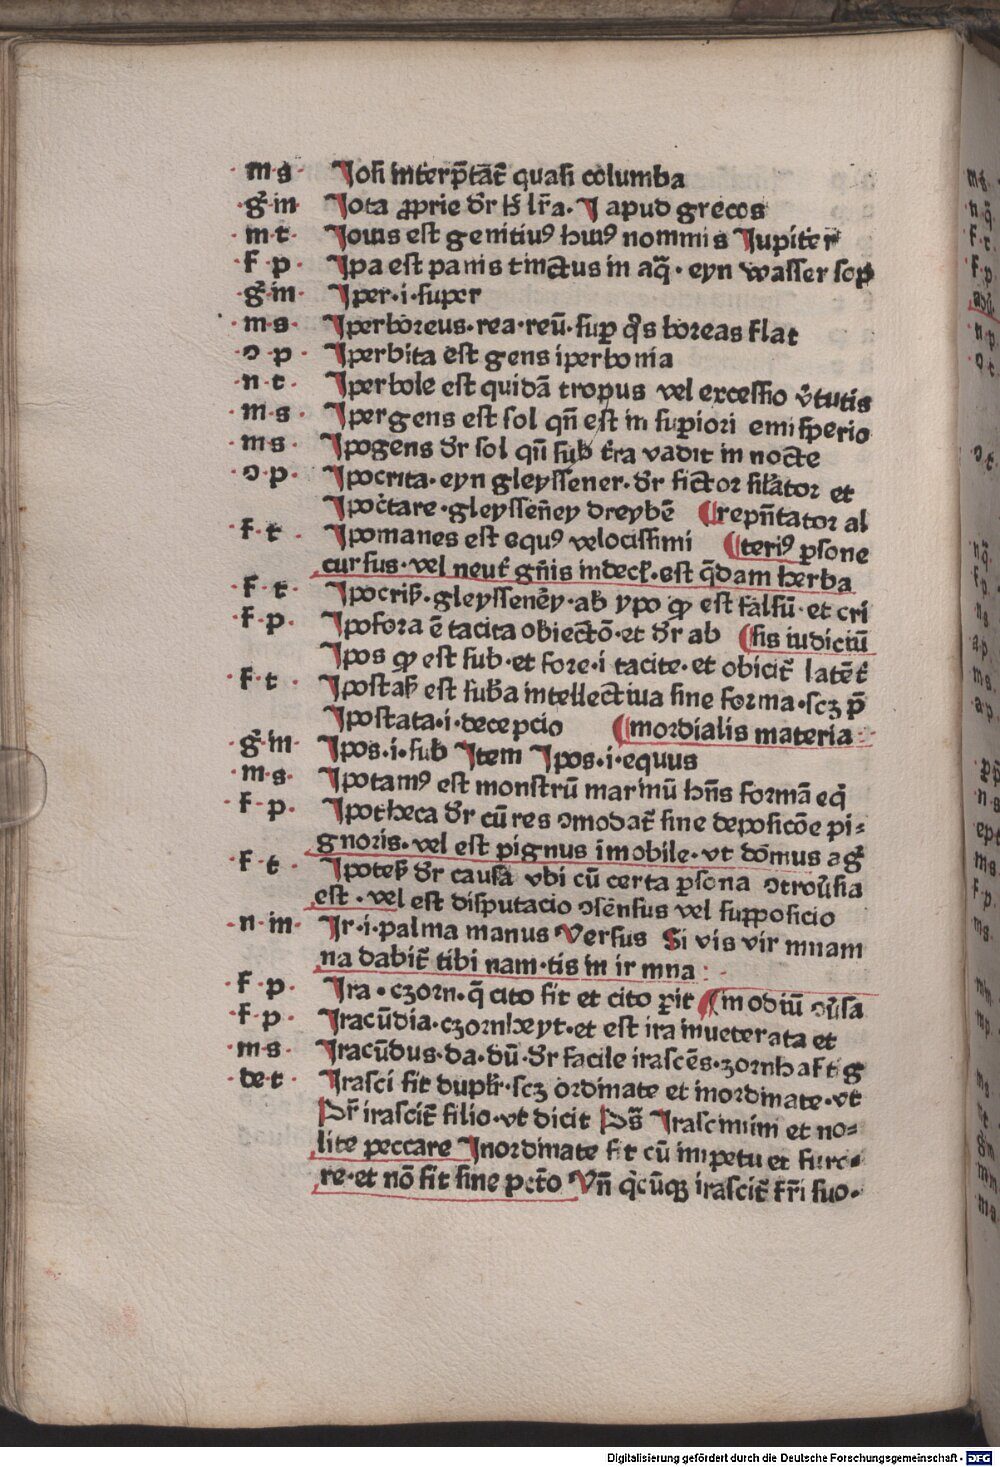 ·m·s· Josi interp̄tat̄ quasi columba
·g̃·in· Jota ꝓprie dr̄ hͦ lr̄a· J apud grecos
·m·t· Jouis est genitiuꝰ huiꝰ nominis Jupiter
·f·p· Jpa est panis tinctus in aq̄· eyn wasser sop
·g̃·in· Jper·i·super
·m·s· Jperboreus·rea·reū·suꝑ qͦs boreas flat
·ɔ·p· Jperbita est gens iperbonia
·n·t· Jperbole est quidā tropus vel excessio v̄tutis
·m·s· Jpergens est sol qn̄ est in suꝑiori emisperio
·m·s· Jpogens dr̄ sol qn̄ sub t̄ra vadit in nocte
·ɔ·p· Jpocrita·eyn gleyssener·dr̄ fictor sil̄ator et
Jpoc̄tare·gleyssen̄ey dreybē ⸿repn̄tator al
·f·t· Jpomanes est equꝰ velocissimi ⸿teriꝰ ꝑsone
cursus·vel neut̄ gn̄is indecl̄·est q̄dam herba
·f·t· Jpocris̄·gleyssenēy·ab ypo qͦ est falsū·et cri
·f·p· Jpofora ē tacita obiectō·et dr̄ ab ⸿sis iudiciū
Jpos qͦ est sub·et fore·i tacite·et obicit̄ latēt̄
·f·t· Jpostas̄ est sub̄a intellectiua sine forma·scꝫ p̄
Jpostata·i·decepcio ⸿mordialis materia
·g̃·in· Jpos·i·sub Jtem Jpos·i·equus
·m·s· Jpotamꝰ est monstrū marinū hn̄s formā eq̄
·f·p· Jpotheca dr̄ cū res ɔmodat̄ sine deposicōe pi-
gnoris·vel est pignus īmobile·vt domus aḡ
·f·t· Jpotes̄ dr̄ causa vbi cū certa ꝑsona ɔtrou̓sia
est·vel est disputacio ɔsensus vel supposicio
·n·in· Jr·i·palma manus Versus Si vis vir mnam
na dabit̄ tibi nam·tis in ir mna
·f·p· Jra·czorn·q̄ cito fit et cito ꝑit ⸿in odiū ɔu̓sa
·f·p· Jracūdia·czornheyt·et est ira inueterata et
·m·s· Jracūdus·da·dū·dr̄ facile irascēs·zornhaftig
·de·t· Jrasci fit dupl̄r·scꝫ ordinate et inordinate·vt
Pr̄ irascit̄ filio·vt dicit Ps̄ Jrascimini et no-
lite peccare Jnordinate fit cū impetu et furo-
re·et nō fit sine pctō Vn̄ qi̓cūqꝫ irascit̄ fr̄i suo·
Digitalisierung gefördert durch die Deutsche Forschungsgemeinschaft · DFG